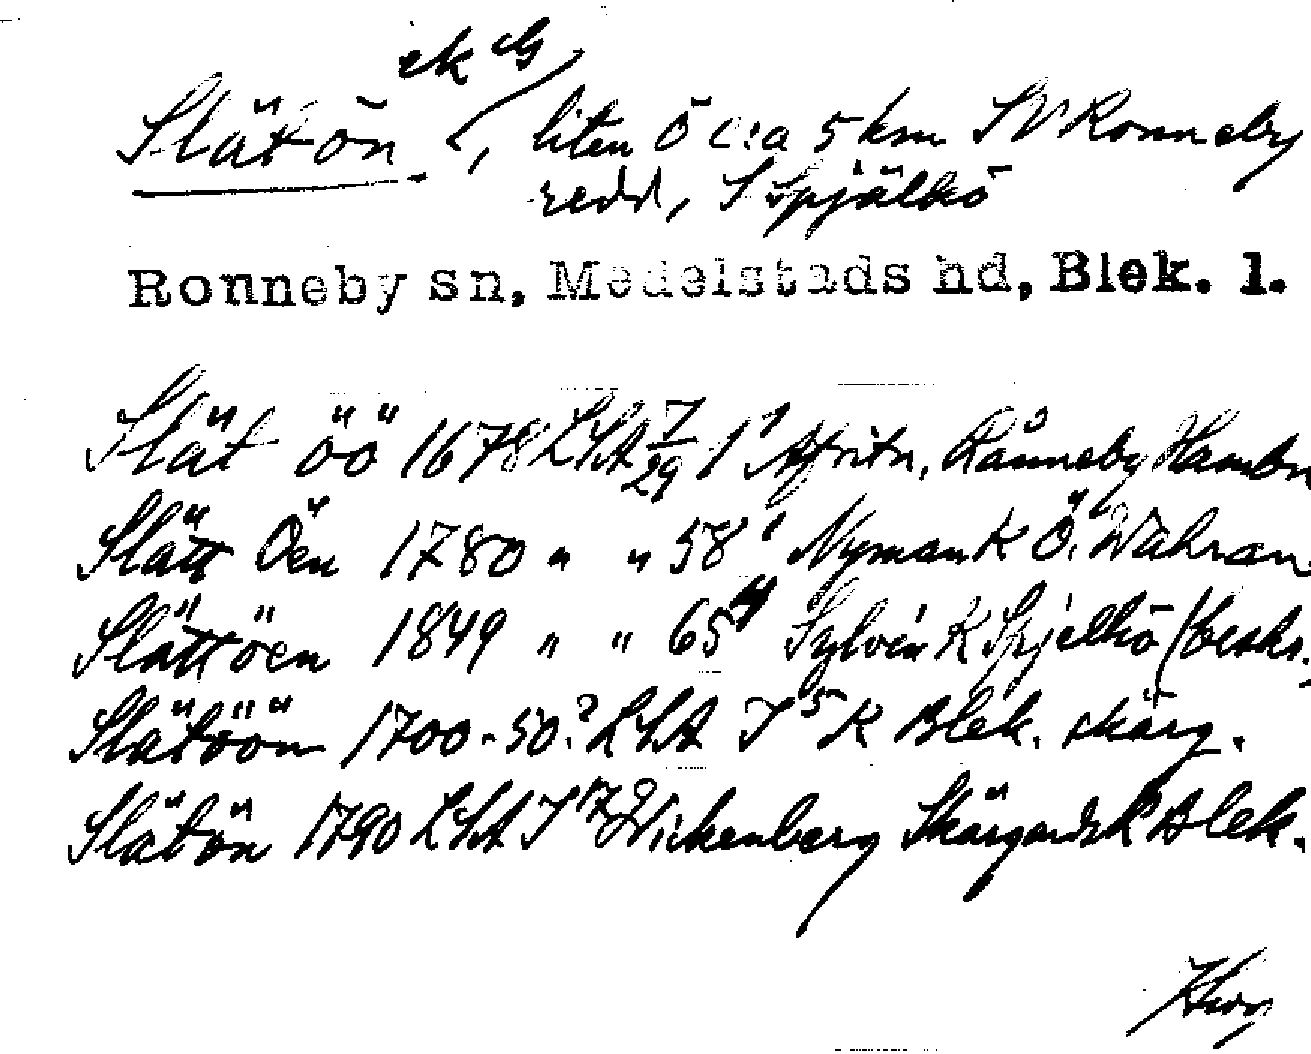 ek G
Slätön, liten ö c:a 5 km SV Ronneby
redd, S Spjälkö
Ronneby sn, Medelstads hd, Blek. l.
Slät öö 1678 LSA 7/29 1 Afritn. Rånneby Hambn
Slätt Öen 1780 " " 58 1 Nyman K Ö. Wahran
Slättöen 1849 " " 65 4 Sylvén K Spjelkö (beskr.
Slätöön 1700-50? LSA I 5 K Blek. skärg.
Slätön 1790 LSA I 17 Wickenberg Skärgårds K Blek.